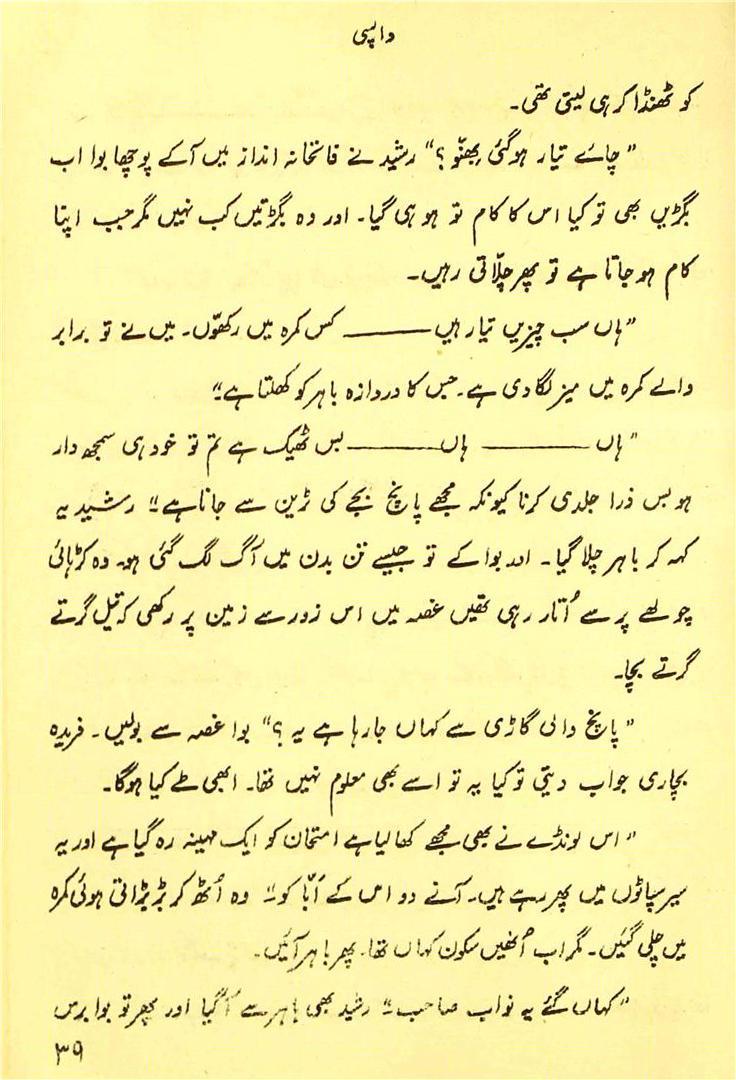 واپسی
کو ٹھنڈا کر ہی لیتی تھی۔
"چائے تیار ہوگئی بھنّو؟" رشید نے فاتحانہ انداز میں آکے پوچھا بوا اب
بگڑیں بھی تو کیا اس کا کام تو ہو ہی گیا۔ اور وہ بگڑتیں کب نہیں مگر جب اپنا
کام ہو جاتا ہے تو پھر چلّاتی رہیں۔
"ہاں سب چیزیں تیار ہیں ——— کس کمرہ میں رکھوں۔ میں نے تو برابر
والے کمرہ میں میز لگا دی ہے۔ جس کا دروازہ باہر کو کُھلتا ہے۔"
"ہاں ——— ہاں ——— بس ٹھیک ہے تم تو خود ہی سمجھ دار
ہو بس ذرا جلدی کرنا کیونکہ مجھے پانچ بجے کی ٹرین سے جانا ہے۔" رشید یہ
کہہ کر باہر چلا گیا۔ اور بوا کے تو جیسے تن بدن میں آگ لگ گئی ہو۔ وہ کڑہائی
چولھے پر سے اُتار رہی تھیں غصہ میں اس زور سے زمین پر رکھی کہ تیل گرتے
گرتے بچا۔
"پانچ والی گاڑی سے کہاں جا رہا ہے یہ؟" بوا غصہ سے بولیں۔ فریدہ
بچاری جواب دیتی تو کیا یہ تو اسے بھی معلوم نہیں تھا۔ ابھی طے کیا ہوگا۔
"اس لونڈے نے بھی مجھے کھا لیا ہے امتحان کو ایک مہینہ رہ گیا ہے اور یہ
سیر سپاٹوں میں پھر رہے ہیں۔ آنے دو اس کے اَبّا کو۔" وہ اُٹھ کر بڑبڑاتی ہوئی کمرہ
میں چلی گئیں۔ مگر اب اُنھیں سکون کہاں تھا۔ پھر باہر آئیں۔
"کہاں گئے یہ نواب صاحب۔" رشید بھی باہر سے آگیا اور پھر تو بوا برس
۳۹